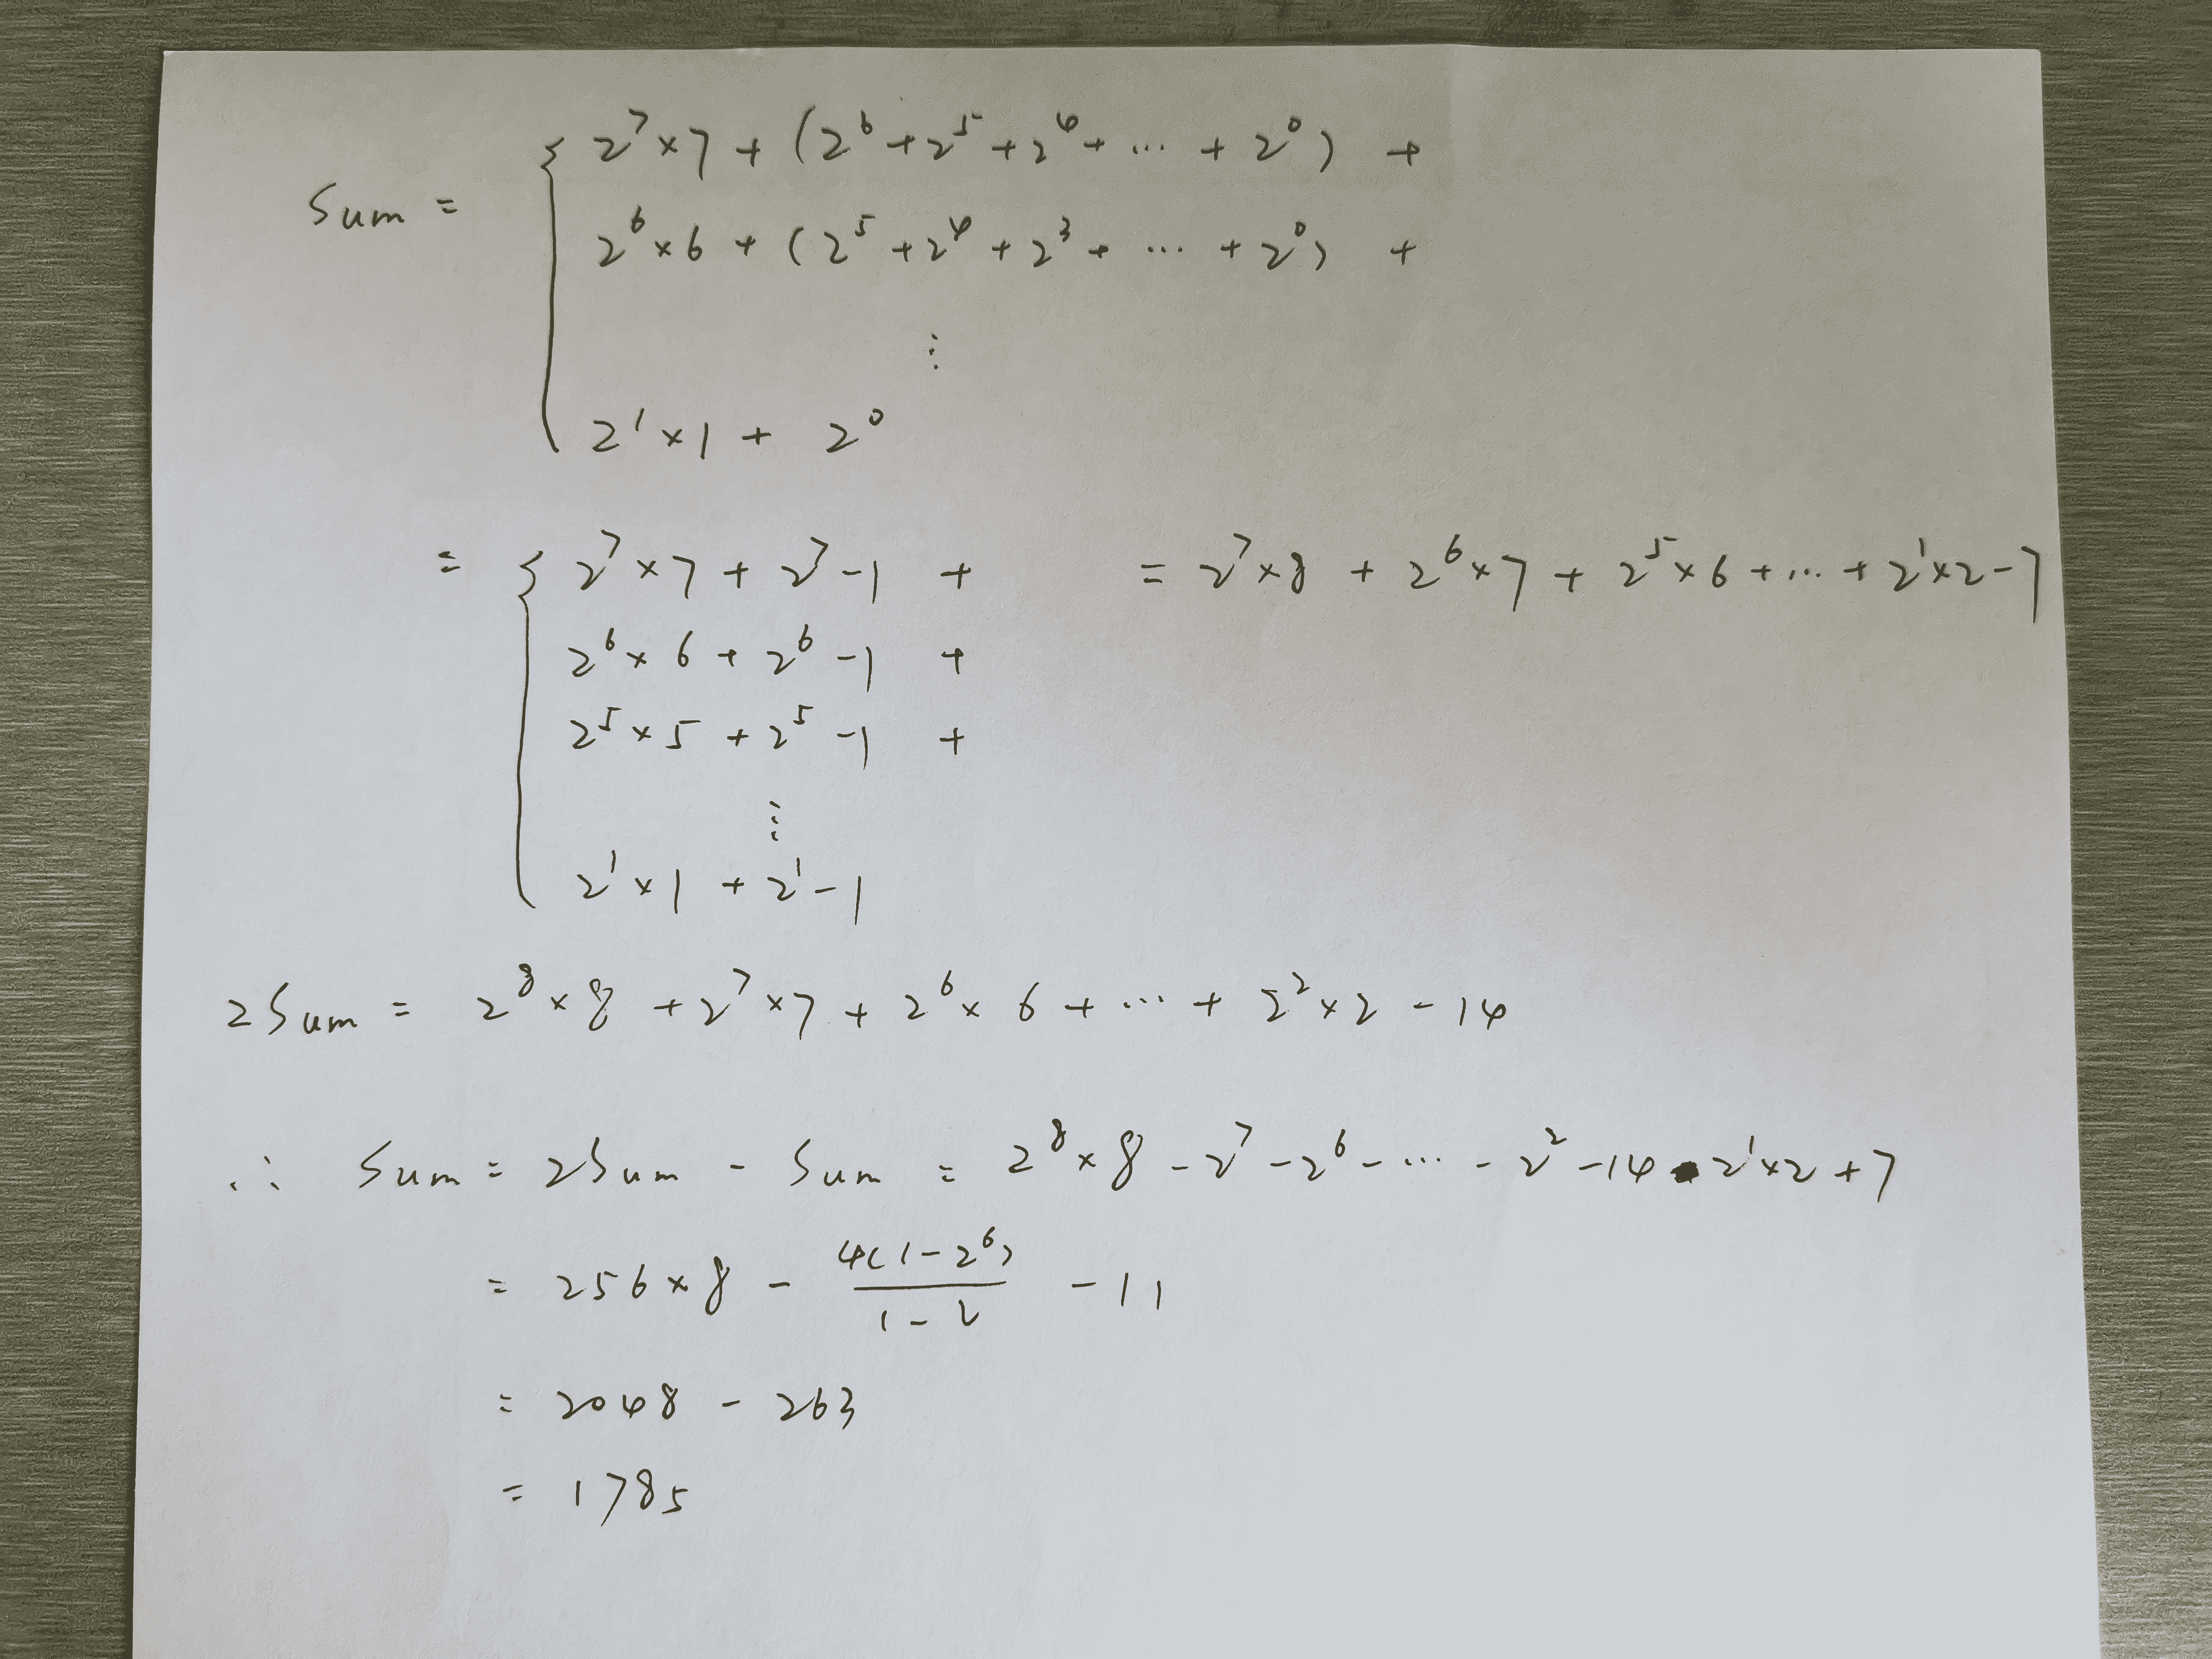 Sum = { 2⁷×7 + (2⁶+2⁵+2⁴+ ... + 2⁰) +
2⁶×6 + (2⁵+2⁴+2³+ ... + 2⁰) +
⋮
2¹×1 + 2⁰
= { 2⁷×7 + 2⁷-1 + = 2⁷×8 + 2⁶×7 + 2⁵×6 + ... + 2¹×2-7
2⁶×6 + 2⁶-1 +
2⁵×5 + 2⁵-1 +
⋮
2¹×1 + 2¹-1
2Sum = 2⁸×8 + 2⁷×7 + 2⁶×6 + ... + 2²×2 - 14
∴ Sum = 2Sum - Sum = 2⁸×8 - 2⁷ - 2⁶ - ... - 2² - 14 - 2¹×2 + 7
= 256×8 - 4(1-2⁶)/(1-2) - 11
= 2048 - 263
= 1785